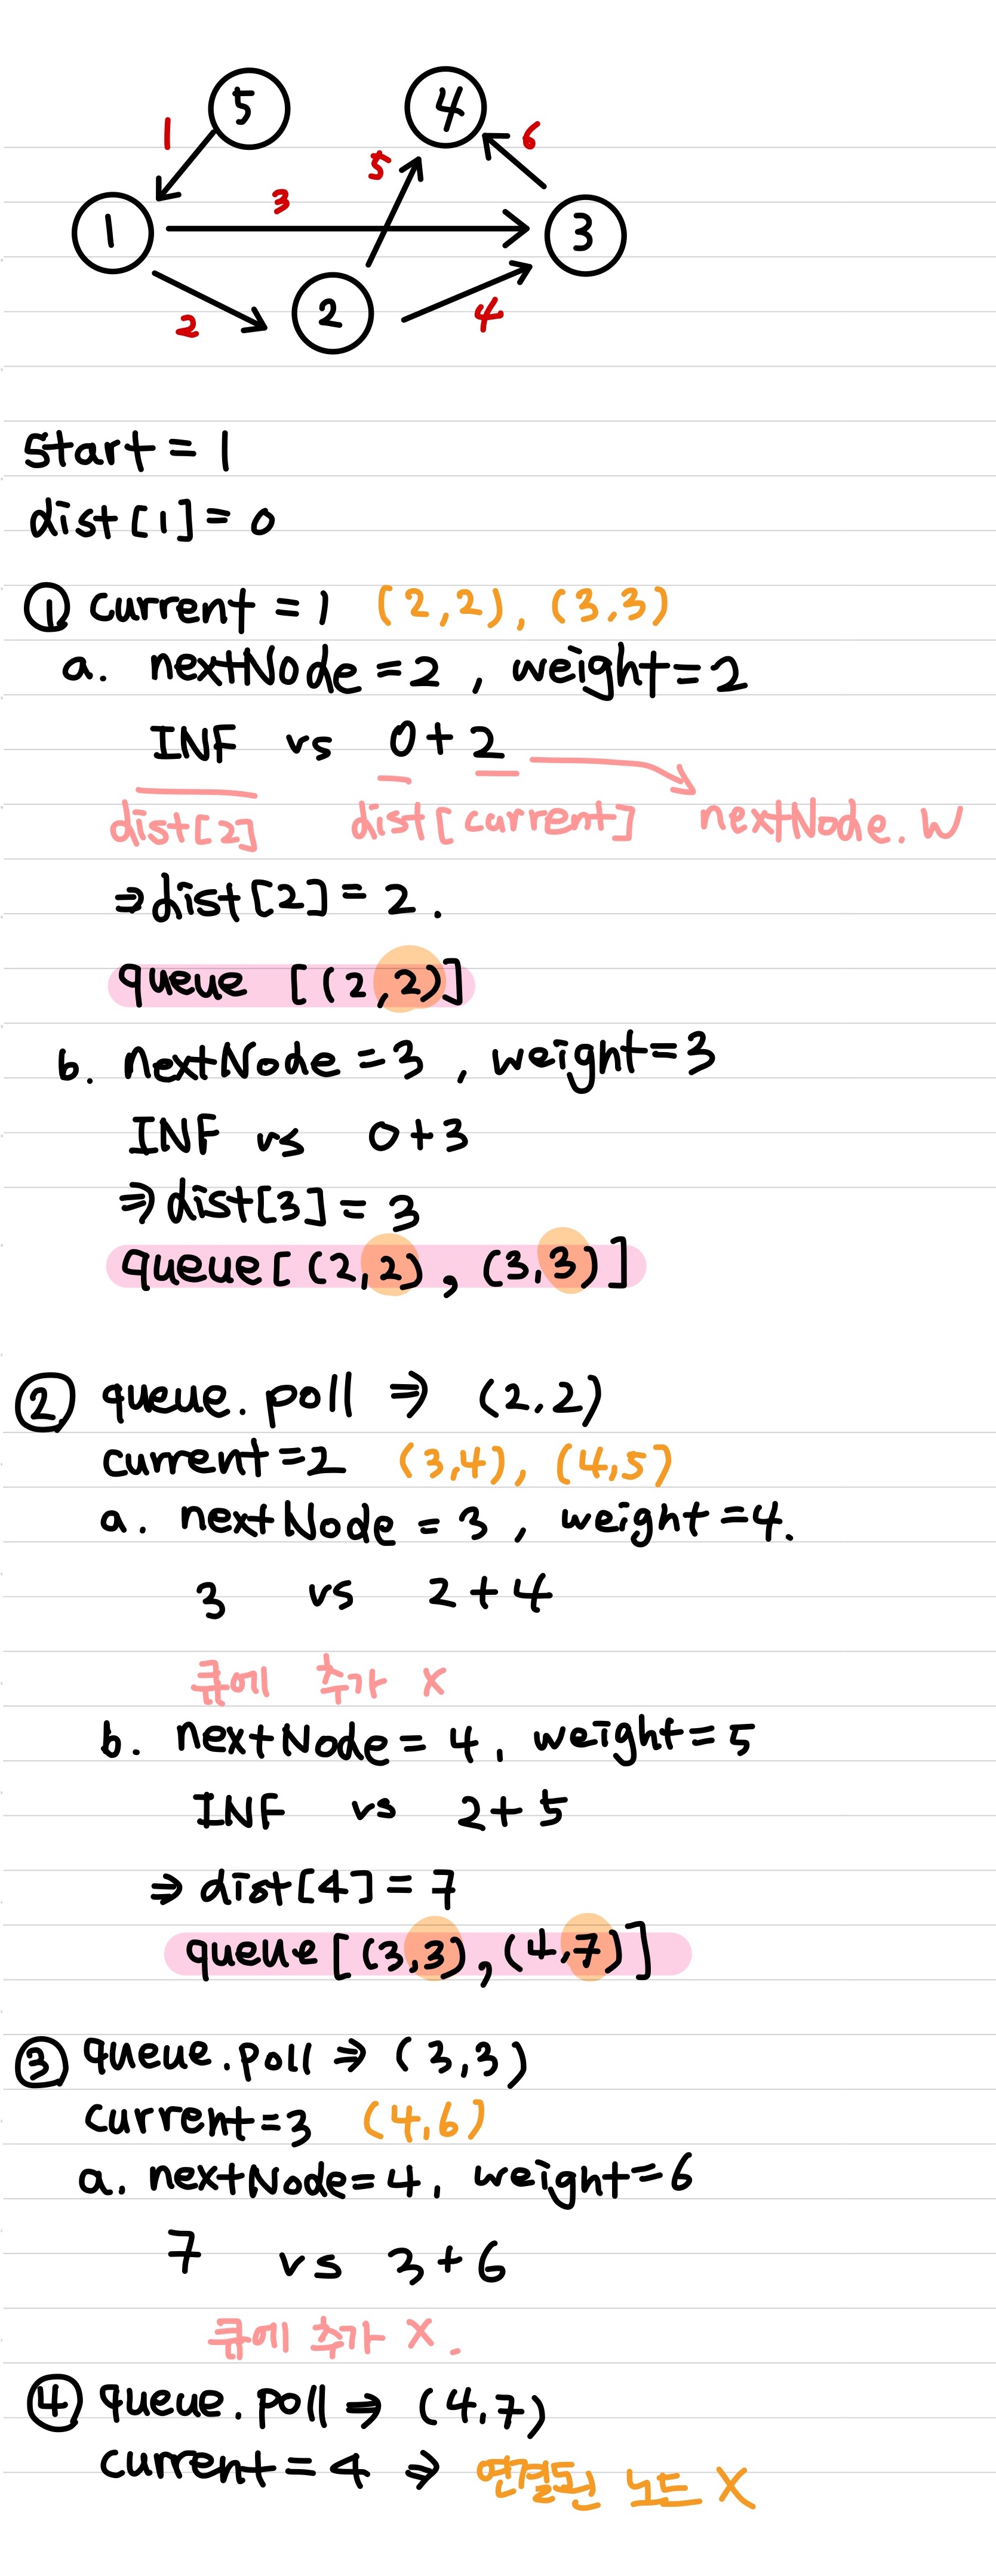 5 4
1 5 6
3
1 3
2
2 4
start = 1
dist[1] = 0
① current = 1 (2,2), (3,3)
a. nextNode = 2 , weight = 2
INF vs 0 + 2
dist[2] dist[current] nextNode.W
⇒ dist[2] = 2.
queue [(2,2)]
b. nextNode = 3 , weight = 3
INF vs 0+3
⇒ dist[3] = 3
queue[(2,2), (3,3)]
② queue.poll ⇒ (2,2)
current = 2 (3,4), (4,5)
a. nextNode = 3 , weight = 4.
3 vs 2 + 4
큐에 추가 X
b. nextNode = 4, weight = 5
INF vs 2 + 5
⇒ dist[4] = 7
queue[(3,3),(4,7)]
③ queue.poll ⇒ (3,3)
current = 3 (4,6)
a. nextNode = 4, weight = 6
7 vs 3 + 6
큐에 추가 X.
④ queue.poll ⇒ (4,7)
current = 4 ⇒ 연결된 노드 X